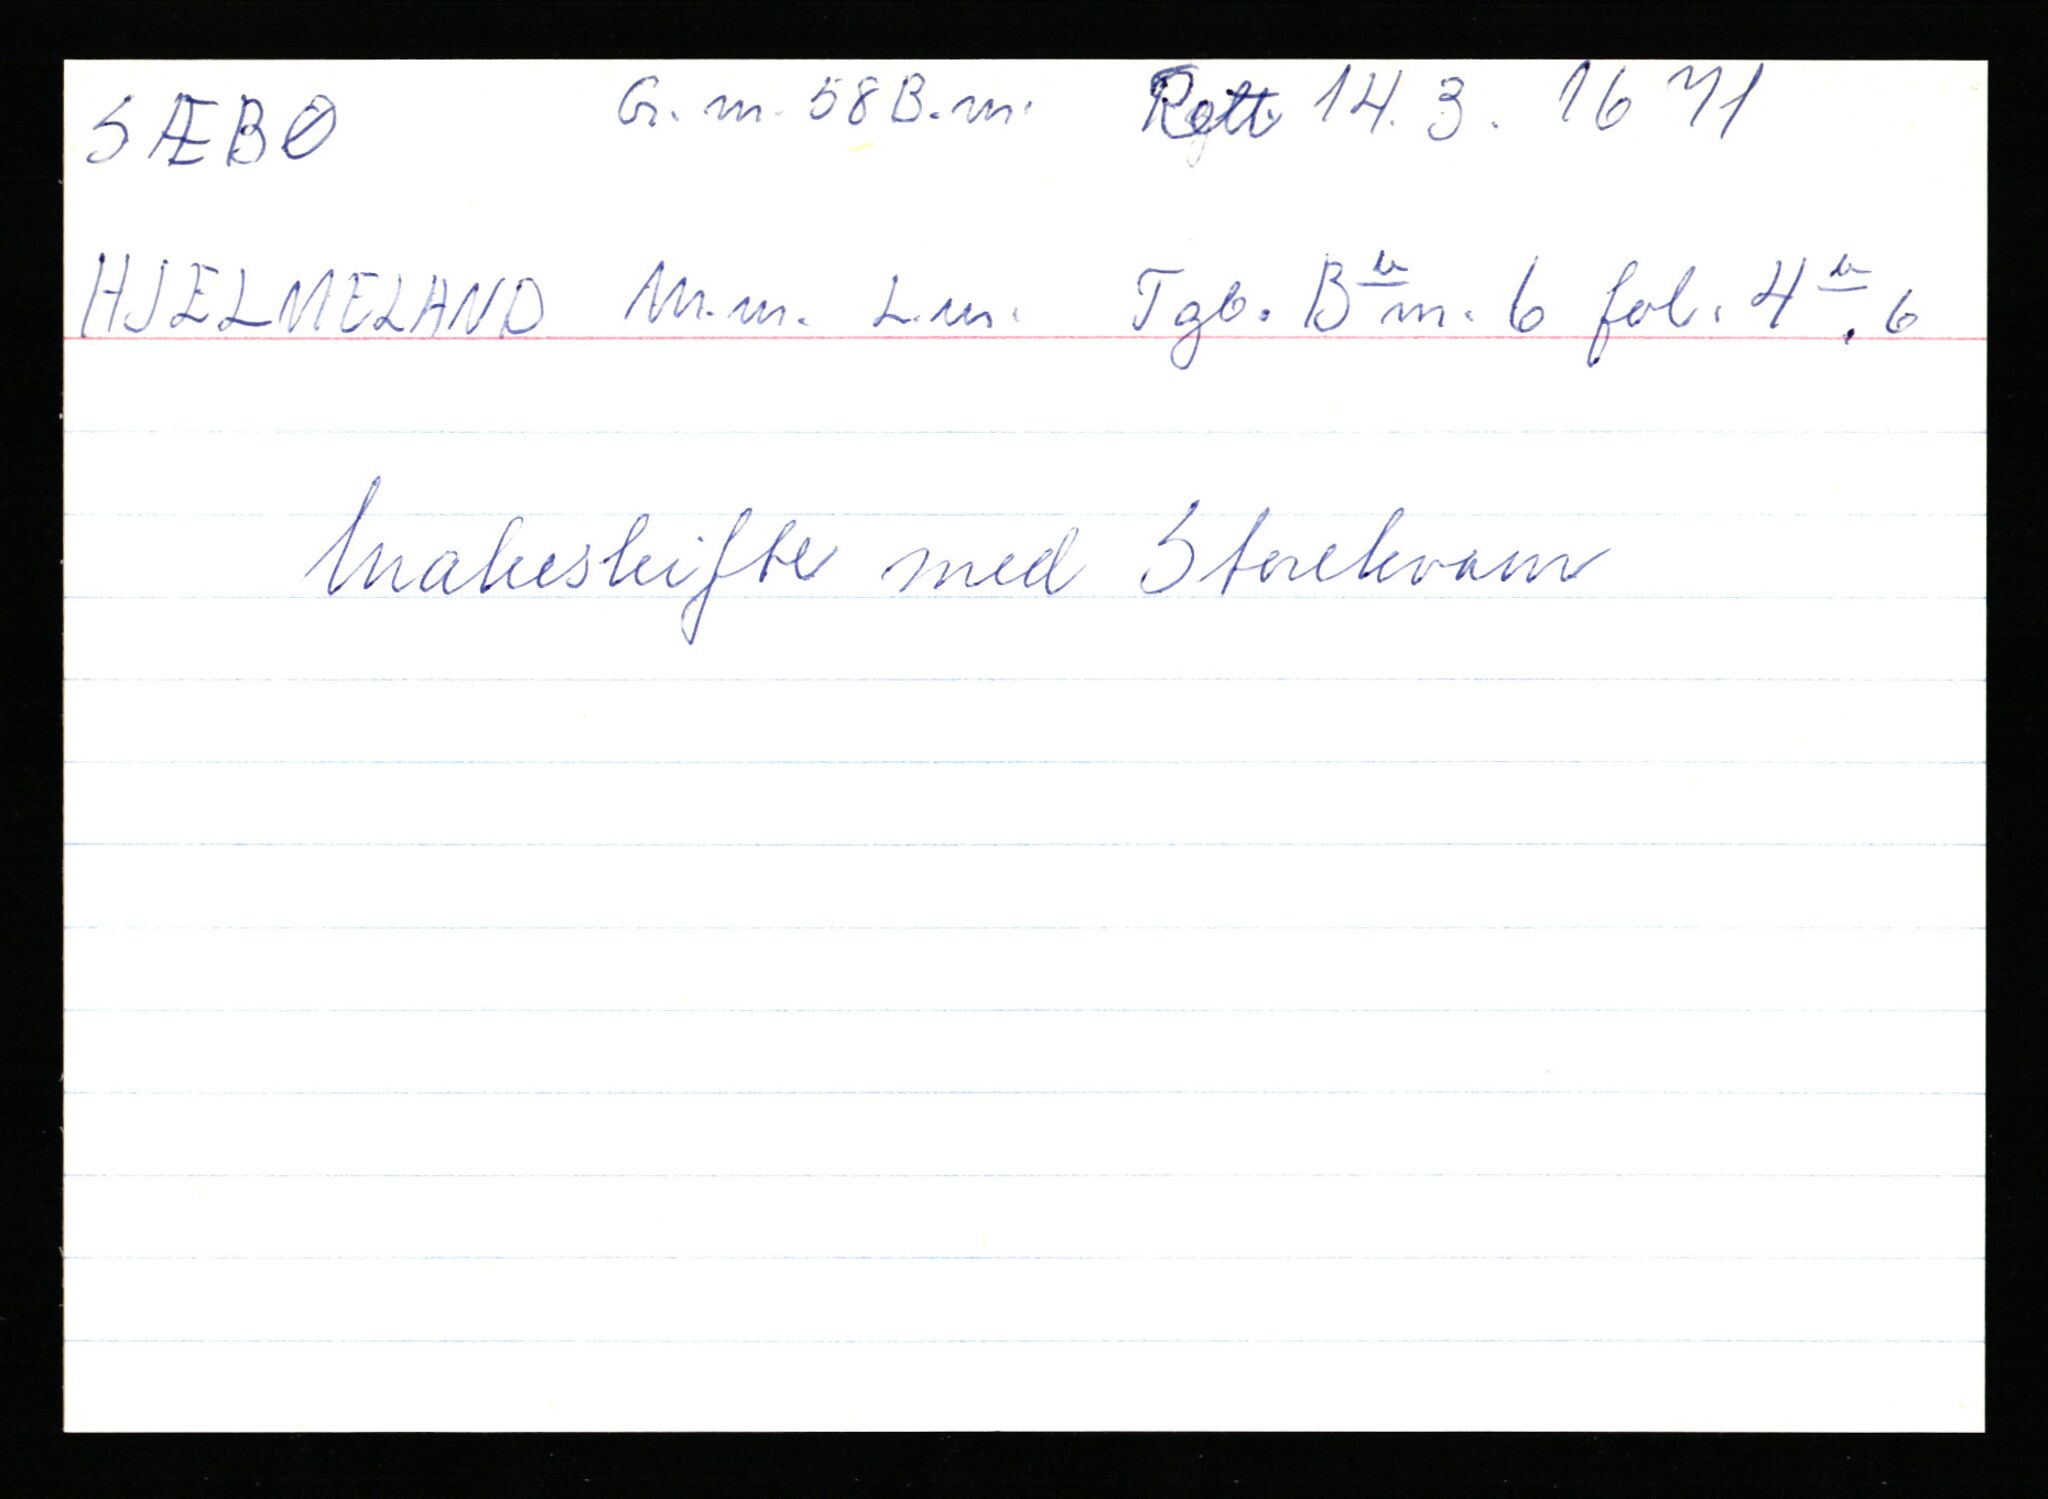 SÆBØ G.n. 58 B.n. Rett 14.3.1671
HJELMELAND M.n. L.n. Tgb. B n. 6 fol. 4 . 6
Makeskifte med Storekvam